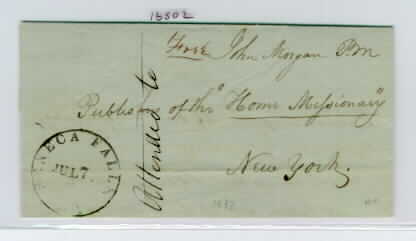 18502
Free John Morgan P.M
Publishers of the Home Missionary
New York.
Attended to
SENECA FALLS
JUL 7.
1837